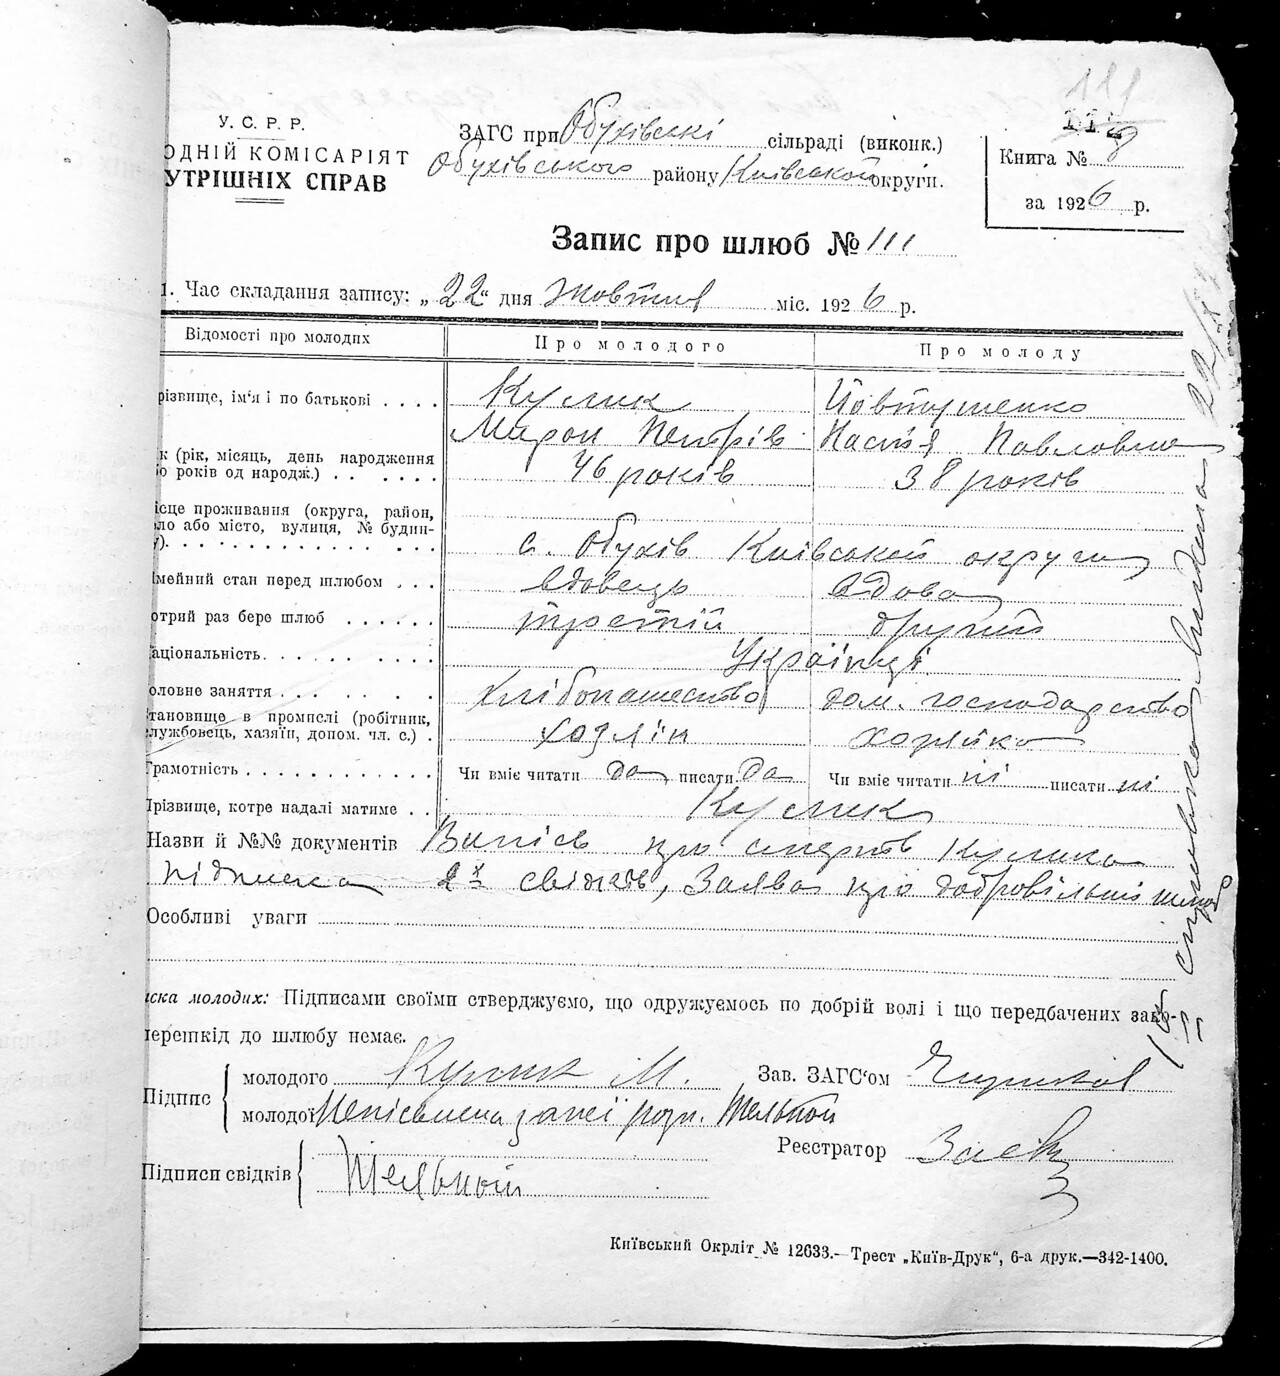 111
112
У. С. Р. Р.
ОДНІЙ КОМІСАРІЯТ
УТРІШНІХ СПРАВ
ЗАГС при Обухівські сільраді (виконк.)
Обухівського району Київської округи.
Книга № 8
за 1926 р.
Запис про шлюб № 111
1. Час складання запису: „22" дня Жовтня міс. 1926 р.
Відомості про молодих Про молодого Про молоду
різвище, ім'я і по батькові . . . . Кулик Йовтушенко
Мирон Петрів Настя Павловна
к (рік, місяць, день народження
о років од народж.) . . . . . . 46 років 38 років
ісце проживання (округа, район,
ло або місто, вулиця, № будин-
у). с. Обухів Київської округи
імейний стан перед шлюбом . . . вдовець вдова
отрий раз бере шлюб . . . . . . третій другий
аціональність. Українці
оловне заняття . . . хлібопашество дом. господарство
тановище в промислі (робітник,
службовець, хазяїн, допом. чл. с.) . хозяін хозяйка
Грамотність Чи вміє читати да писати да Чи вміє читати ні писати ні
Прізвище, котре надалі матиме . . Кулик
Назви й №№ документів Випісь про смерть Кулика
підписка 2х свідків, Заява про добровільний шлюб
Особливі уваги
иска молодих: Підписами своїми стверджуємо, що одружуємось по добрій волі і що передбачених зако-
перешкід до шлюбу немає.
Підпис
молодого Кулик М.
молодої Непісьмена за неї розп. Мельной
Зав. ЗАГС'ом
Реєстратор
Підписи свідків Мельной
Київський Окрліт № 12633.— Трест „Київ-Друк", 6-а друк.—342-1400.